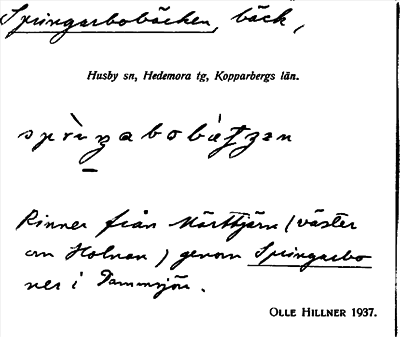 Springarbobäcken, bäck,
Husby sn, Hedemora tg, Kopparbergs län.
Rinner från Mårttjärn (väster
om Holnan) genom Springarbo
ner i Dammsjön.
OLLE HILLNER 1937.